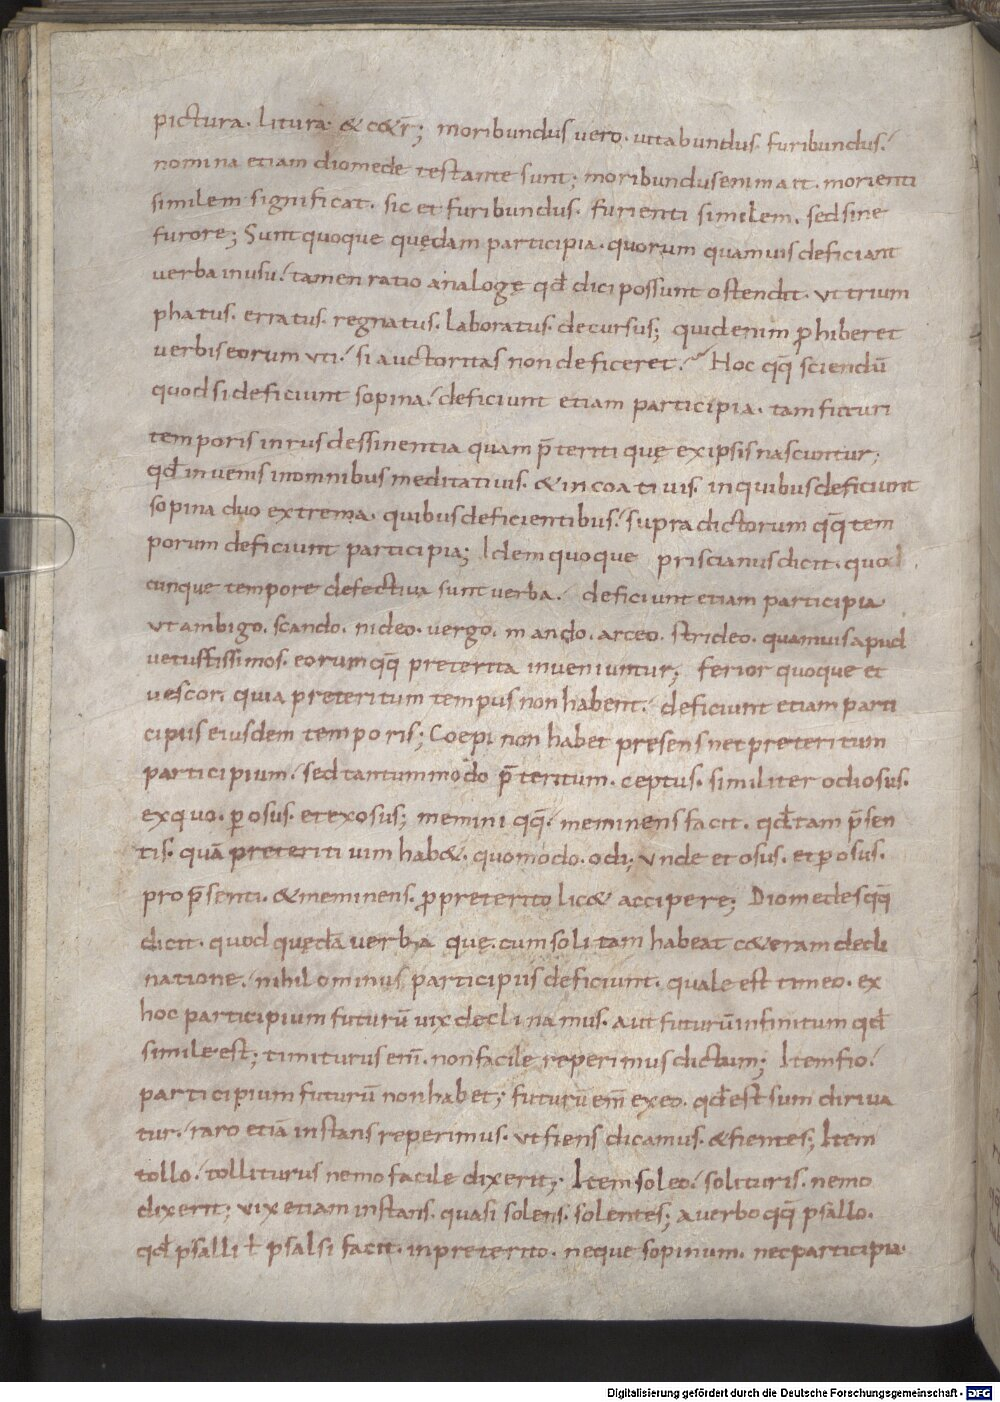 pictura· litura· & cę&r̄; moribundus vero· vitabundus· furibundus·
nomina etiam diomede testante sunt; moribundus enim ait· morienti
similem significat· sic et furibundus· furienti similem· sed sine
furore; Sunt quoque quędam participia· quorum quamvis deficiant
verba in usu· tamen ratio analogę qđ dici possunt ostendit· ut trium
phatus· erratus· regnatus· laboratus· decursus; quid enim ꝓhiberet
verbis eorum uti· si auctoritas non deficeret· Hoc qq̄ sciendū
quod si deficiunt sopina· deficiunt etiam participia· tam futuri
temporis in rus dessinentia quam p̄teriti quę ex ipsis nascuntur;
qđ invenis in omnibus meditativis· & incoativis· in quibus deficiunt
sopina duo extrema· quibus deficientibus· supra dictorum qq̄ tem
porum deficiunt participia; Idem quoque priscianus dicit· quod
cunque tempore defectiva sunt verba· deficiunt etiam participia
ut ambigo· scando· nideo· vergo· mando· arceo· strideo· quamvis apud
vetustissimos· eorum qq̄ preterita inveniuntur; ferior quoque et
vescor· quia preteritum tempus non habent· deficiunt etiam parti
cipiis eiusdem temporis; Coepi non habet presens nec preteritum
participium· sed tantummodo p̄teritum· ceptus· similiter odi osus·
ex quo· ꝑosus· et exosus; memini qq̄· meminens facit· qđ tam p̄sen
tis· quā preteriti vim hab&· quomodo· odi; unde et osus· et ꝑosus·
pro p̄senti· & meminens· ꝓ preterito lic& accipere; Diomedes qq̄
dicit· quod quędā verba quę· cum solitam habeat cę&eram decli
natione· nihil ominus participiis deficiunt· quale est timeo· ex
hoc participium futurū vix declinamus· aut futurū infinitum qđ
simile est; timiturus em̄· non facile reperimus dictum; Item fio·
participium futurū non habet; futurū em̄ ex eo· qđ est sum diriva
tur· raro etiā instans reperimus· ut fiens dicamus· & fientes; Item
tollo· tolliturus nemo facile dixerit; Item soleo· solituris· nemo
dixerit; vix etiam instans· quasi solens· solentes; a verbo qq̄ psallo·
qđ psalli ł psalsi facit· in preterito· neque sopinum· nec participia·
Digitalisierung gefördert durch die Deutsche Forschungsgemeinschaft - DFG